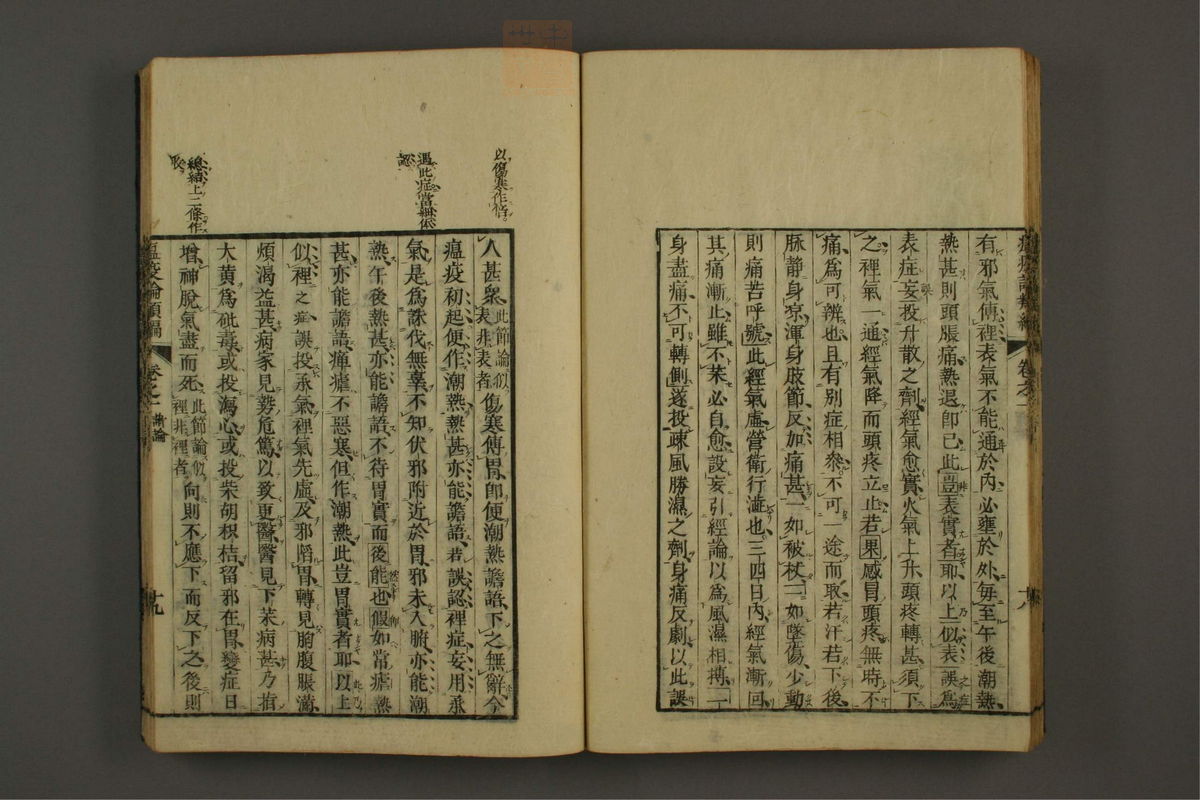 有邪氣傳裡表氣不能通於內必壅於外每至午後潮熱
熱甚則頭脹痛熱退卽已此豈表實者耶以上似表誤爲
表症妄投升散之劑經氣愈實火氣上升頭疼轉甚須下
之裡氣一通經氣降而頭疼立止若果感冒頭疼無時不
痛爲可辨也且有別症相參不可一途而取若汗若下後
脉静身凉渾身肢節反加痛甚一如被杖一如墜傷少動
則痛苦呼號此經氣虛營衛行澁也三四日內經氣漸回
其痛漸止雖不茱必自愈設妄引經論以爲風濕相搏一
身盡痛不可轉側遂投疎風勝濕之劑身痛反劇以此誤
十八
以傷寒作
遇此症當細
認
總結上二條作
人甚衆此節論似
表非表者傷寒傳胃卽便潮熱譫語下之無辭今
瘟疫初起便作潮熱熱甚亦能譫語若誤認裡症妄用承
氣是爲誅伐無辜不知伏邪附近於胃邪未入腑亦能潮
熱午後熱甚亦能譫語不待胃實而後能也假如常瘧熱
甚亦能譫語癉瘧不惡寒但作潮熱此豈胃實者耶以上
似裡之症誤投承氣裡氣先虛及邪陷胃轉見胸腹脹滿
煩渴益甚病家見勢危篤以致更醫醫見下茱病甚乃指
大黄爲砒毒或投瀉心或投柴胡枳桔留邪在胃變症日
增神脫氣盡而死此節論似
裡非裡者向則不應下而反下之後則
瘟疫論類編
卷之一
論
十九